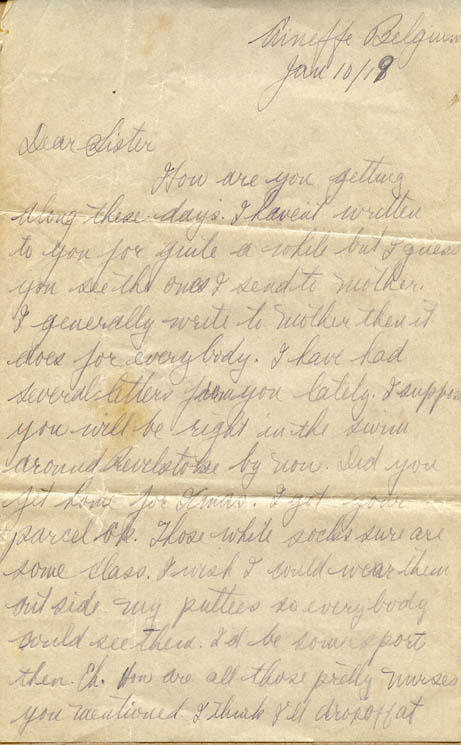 Aineffe Belgium
Jan 10/19
Dear Sister
How are you getting
along these days. I havent written
to you for quite a while but I guess
you see the ones I send to Mother.
I generally write to Mother then it
does for everybody. I have had
several letters from you lately. I suppose
you will be right in the swim
around Revelstoke by now. Did you
get home for Xmas. I got your
parcel ok. Those white socks sure are
some class. I wish I could wear them
out side my puttees so everybody
could see them. I'd be some sport
then. Eh. How are all those pretty nurses
you mentioned. I think I'll drop off at